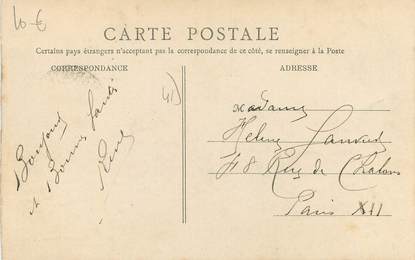 10 €
CARTE POSTALE
Certains pays étrangers n'acceptant pas la correspondance de ce côté, se renseigner à la Poste
CORRESPONDANCE
ADRESSE
41)
Bonjour
et Bonne santé
Madame
Helene
48 Rue de Chalons
Paris XII